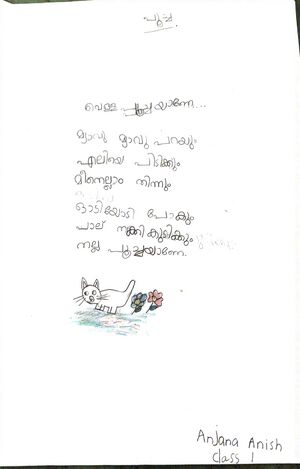 പൂച്ച
വെള്ള പൂച്ചയാണേ...
മ്യാവു മ്യാവു പറയും
എലിയെ പിടിക്കും
മീനെല്ലാം തിന്നും
ഓടിയോടി പോകും
പാല് നക്കി കുടിക്കും
നല്ല പൂച്ചയാണേ.
Anjana Anish
Class 1